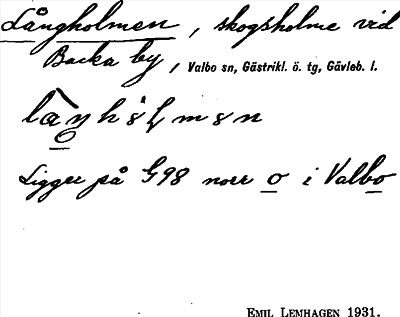 Långholmen, skogsholme vid
Backa by, Valbo sn, Gästrikl. ö. tg, Gävleb. l.
Ligger på G98 norr o i Valbo
EMIL LEMHAGEN 1931.